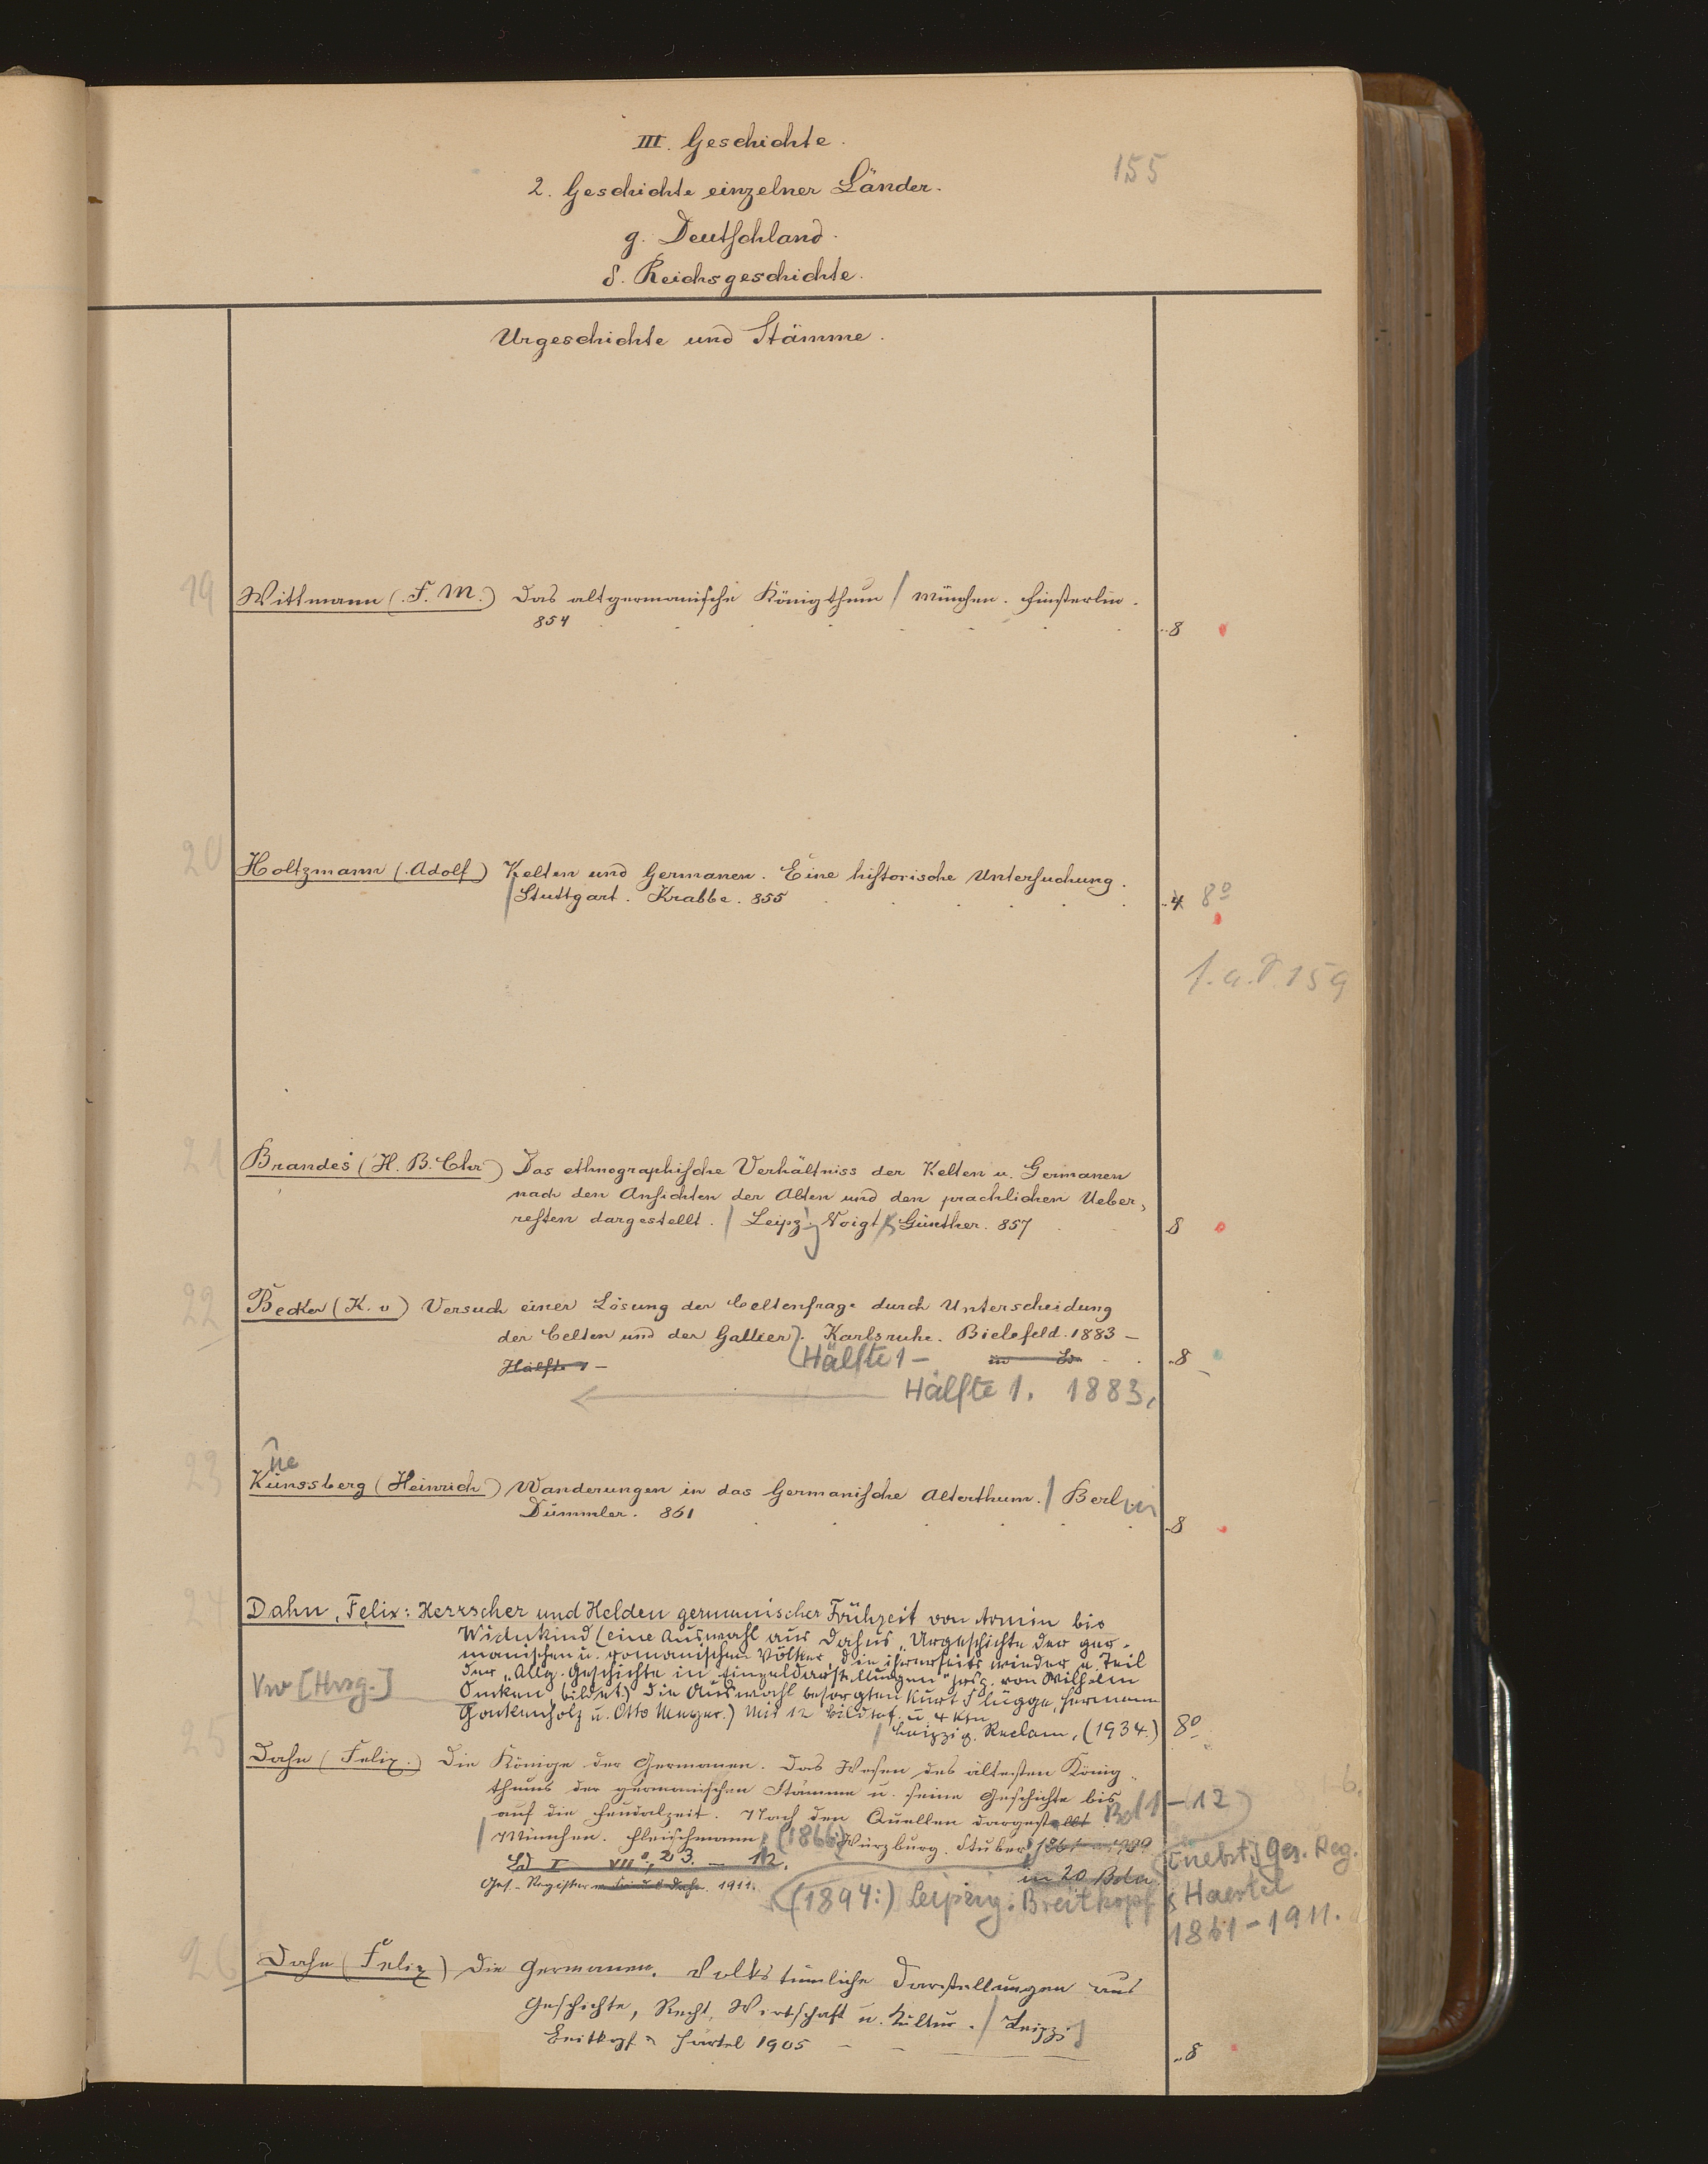 III. Geschichte.
155
2. Geschichte einzelner Länder.
g. Deutschland.
δ. Reichsgeschichte.
Urgeschichte und Stämme.
19 Wittmann (F. M.) Das altgermanische Königthum / München. Finsterlin.
854 8
20 Holtzmann (Adolf) Kelten und Germanen. Eine historische Untersuchung.
/ Stuttgart. Krabbe. 855 4 8º
159
21 Brandes (H. B. Chr) Das ethnographische Verhältniss der Kelten u. Germanen
nach den Ansichten der Alten und den prachlichen Ueber-
resten dargestellt. / Leipzig Voigt & Günther. 857 8
22 Becker (K. v) Versuch einer Lösung der Celtenfrage durch Unterscheidung
der Celten und der Gallier). Karlsruhe. Bielefeld. 1883 –
Hälfte 1 – (Hälfte 1 – 8
Hälfte 1. 1883.
ne
23 Künssberg (Heinrich) Wanderungen in das Germanische Alterthum. / Berlin
Dümmler. 861 8
24 Dahn, Felix: Herrscher und Helden germanischer Frühzeit von Armin bis
Widukind (eine Auswahl aus Dahns „Urgeschichte der ger-
manischen u. romanischen Völker, die ihrerseits wieder e. Teil
der „Allg. Geschichte in Einzeldarstellungen" hrsg. von Wilhelm
Vw [Hrsg.] Oncken, bildet.) Die Auswahl besorgten Kurt Flügge, Hermann
Gonkenholz u. Otto Meyer.) Mit 12 Bildtaf. u 4 Ktn
/ Leipzig. Reclam, (1934.) 8º
25 Dahn (Felix.) Die Könige der Germanen. Das Wesen des ältesten König-
thums der germanischen Stämme u. seine Geschichte bis
auf die Feudalzeit. Nach den Quellen dargestellt Bd 1 – (12)
/ München. Fleischmann; (1866:) Würzburg. Stuber; 1861
Bd I – VII [nebst] Ges. Reg.
in 20 Bdn
Ges.-Register 1911.
(1894:) Leipzig: Breitkopf & Haertel
1861 – 1911.
26 Dahn (Felix) Die Germanen. Volkstümliche Darstellungen aus
Geschichte, Recht, Wirtschaft u. Kultur. / Leipzig
Breitkopf & Härtel 1905 8